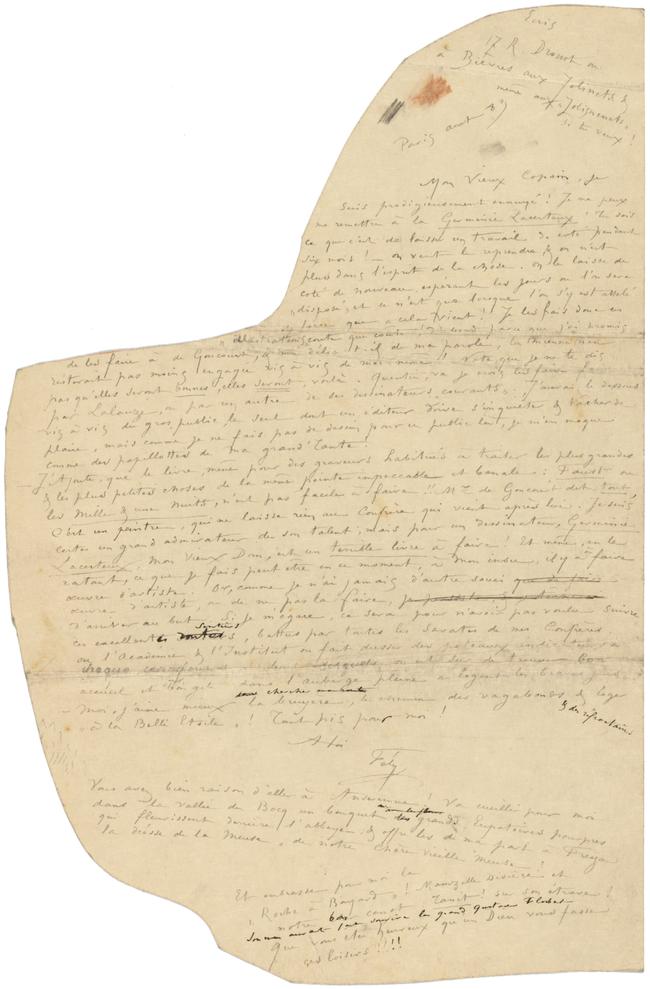 Ecris
17 R. Drouot ou
à Bièvres aux Jolinets &
même aux "Jolignenets"
si tu veux !
Paris aout
Mon Vieux Copain, je
suis prodigieusement ennuyé ! Je ne peux
me remettre à la Germinie Lacerteux ! Tu sais
ce que c'est de laisser un travail de coté pendant
six mois ! — on veut le reprendre & on n'est
plus dans l'esprit de la chose. On le laisse de
coté de nouveau, espérant les jours où l'on sera
disposé, et ce n'est que lorsque l'on s'y est attelé
de force que cela vient ! Je les fais donc ces
illustrations coute que coute ! parce que j'ai promis
de les faire à de Goncourt, & me délia-t-il de ma parole, la mienne n'en
resterait pas moins engagée vis à vis de moi-même ! Note que je ne te dis
pas qu'elles seront bonnes, elles seront, voilà. Quentin, va je crois les faire faire
par Lalauze, ou par un autre de ses dessinateurs courants : J'aurai le dessous
vis à vis du gros public le seul dont un éditeur doive s'inquiéter & Vacharde
plaire, mais comme je ne fais pas de dessin pour ce public là, je m'en moque
comme des papillottes de ma grand'Tante !
— J'ajoute, que le livre, même pour des graveurs habitués à traiter les plus grandes
& les plus petites choses de la même pointe impeccable et banale : Faust ou
les Mille & une Nuits, n'est pas facile à faire !! Mr de Goncourt dit tout,
C'est un peintre, qui ne laisse rien au Confrère qui vient après lui. Je suis
certes un grand admirateur de son talent, mais pour un dessinateur, Germinie
Lacerteux, Mon Vieux Dom, est un terrible livre à faire ! Et même, en le
ratant, ce que je fais peut être en ce moment, à mon insu, il y a à faire
œuvre d'artiste. Or, comme je n'ai jamais d'autre souci que de faire
œuvre d'artiste, ou de ne pas la faire,
d'arriver au but. Si je m'égare, ce sera pour n'avoir pas voulu suivre
ces excellents sentiers, battus par toutes les savates de mes Confrères,
où l'Academie & l'Institut ont fait dresser des poteaux indicateurs à
chaque carrefour & où on est sûr de trouver bon
accueil et bon gite dans l'auberge pleine où logent les braves gens.
— Moi, j'aime mieux sans chercher la bruyère, le chemin des vagabonds & des réfractaires & loger
"à la Belle Etoile" ! Tant pis pour moi !
A toi
Fély
Vous avez bien raison d'aller à Anseremme ! Va cueillir pour moi
dans la vallée du Bocq un bouquet des grands Eupatoires pourpres
qui fleurissent derrière l'abbaye, & offre les de ma part à Freya
la déesse de la Meuse, de notre chère vieille Meuse !
Et embrasse pour moi la
"Roche à Bayard" ! Mamzelle Désirée et
notre bon canot Tanit ! sur son étrave !
Son nom aurait fait sourire le grand Gustave Flobert
Que vous êtes heureux qu'un Dieu vous fasse
ces loisirs !!!!